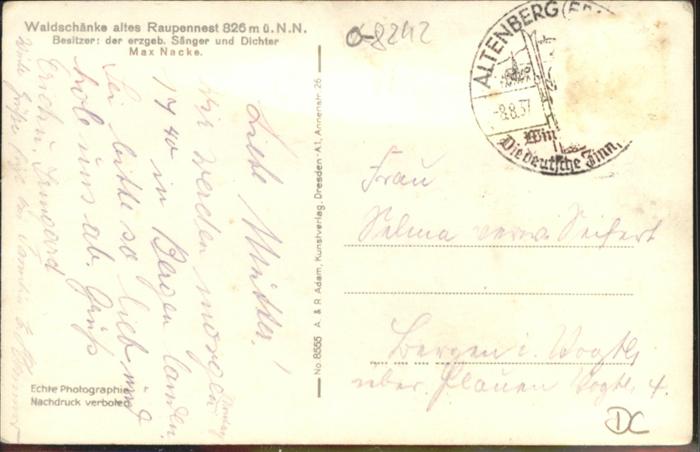 Waldschänke altes Raupennest 826 m ü. N. N.
Besitzer: der erzgeb. Sänger und Dichter
Max Nacke.
Liebe Mutter!
Wir werden morgen
1740 in Bergen landen.
Sei bitte so lieb und
hole uns ab. Gruß
Erich u. Irmgard
Echte Photographie
Nachdruck verboten
No. 8555 A. & R. Adam, Kunstverlag, Dresden-A1, Annenstr. 26
0-8242
ALTENBERG (ER
-8.8.37
Win
Die deutsche Zinn,
Frau
Selma verw. Seifert
Bergen i. Vogtl.
über Plauen Vogtl. 4.
DC